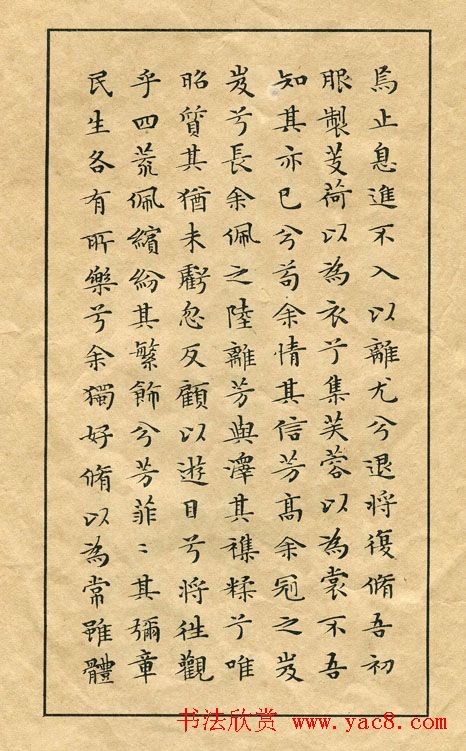 焉止息進不入以離尤兮退将復脩吾初
服製芰荷以為衣兮集芙蓉以為裳不吾
知其亦已兮苟余情其信芳髙余冠之岌
岌兮長余佩之陸離芳與澤其襍糅兮唯
昭質其猶未虧忽反顧以遊目兮将徃觀
乎四荒佩繽紛其繁飾兮芳菲〻其彌章
民生各有所樂兮余獨好脩以為常雖體
书法欣赏 www.yac8.com